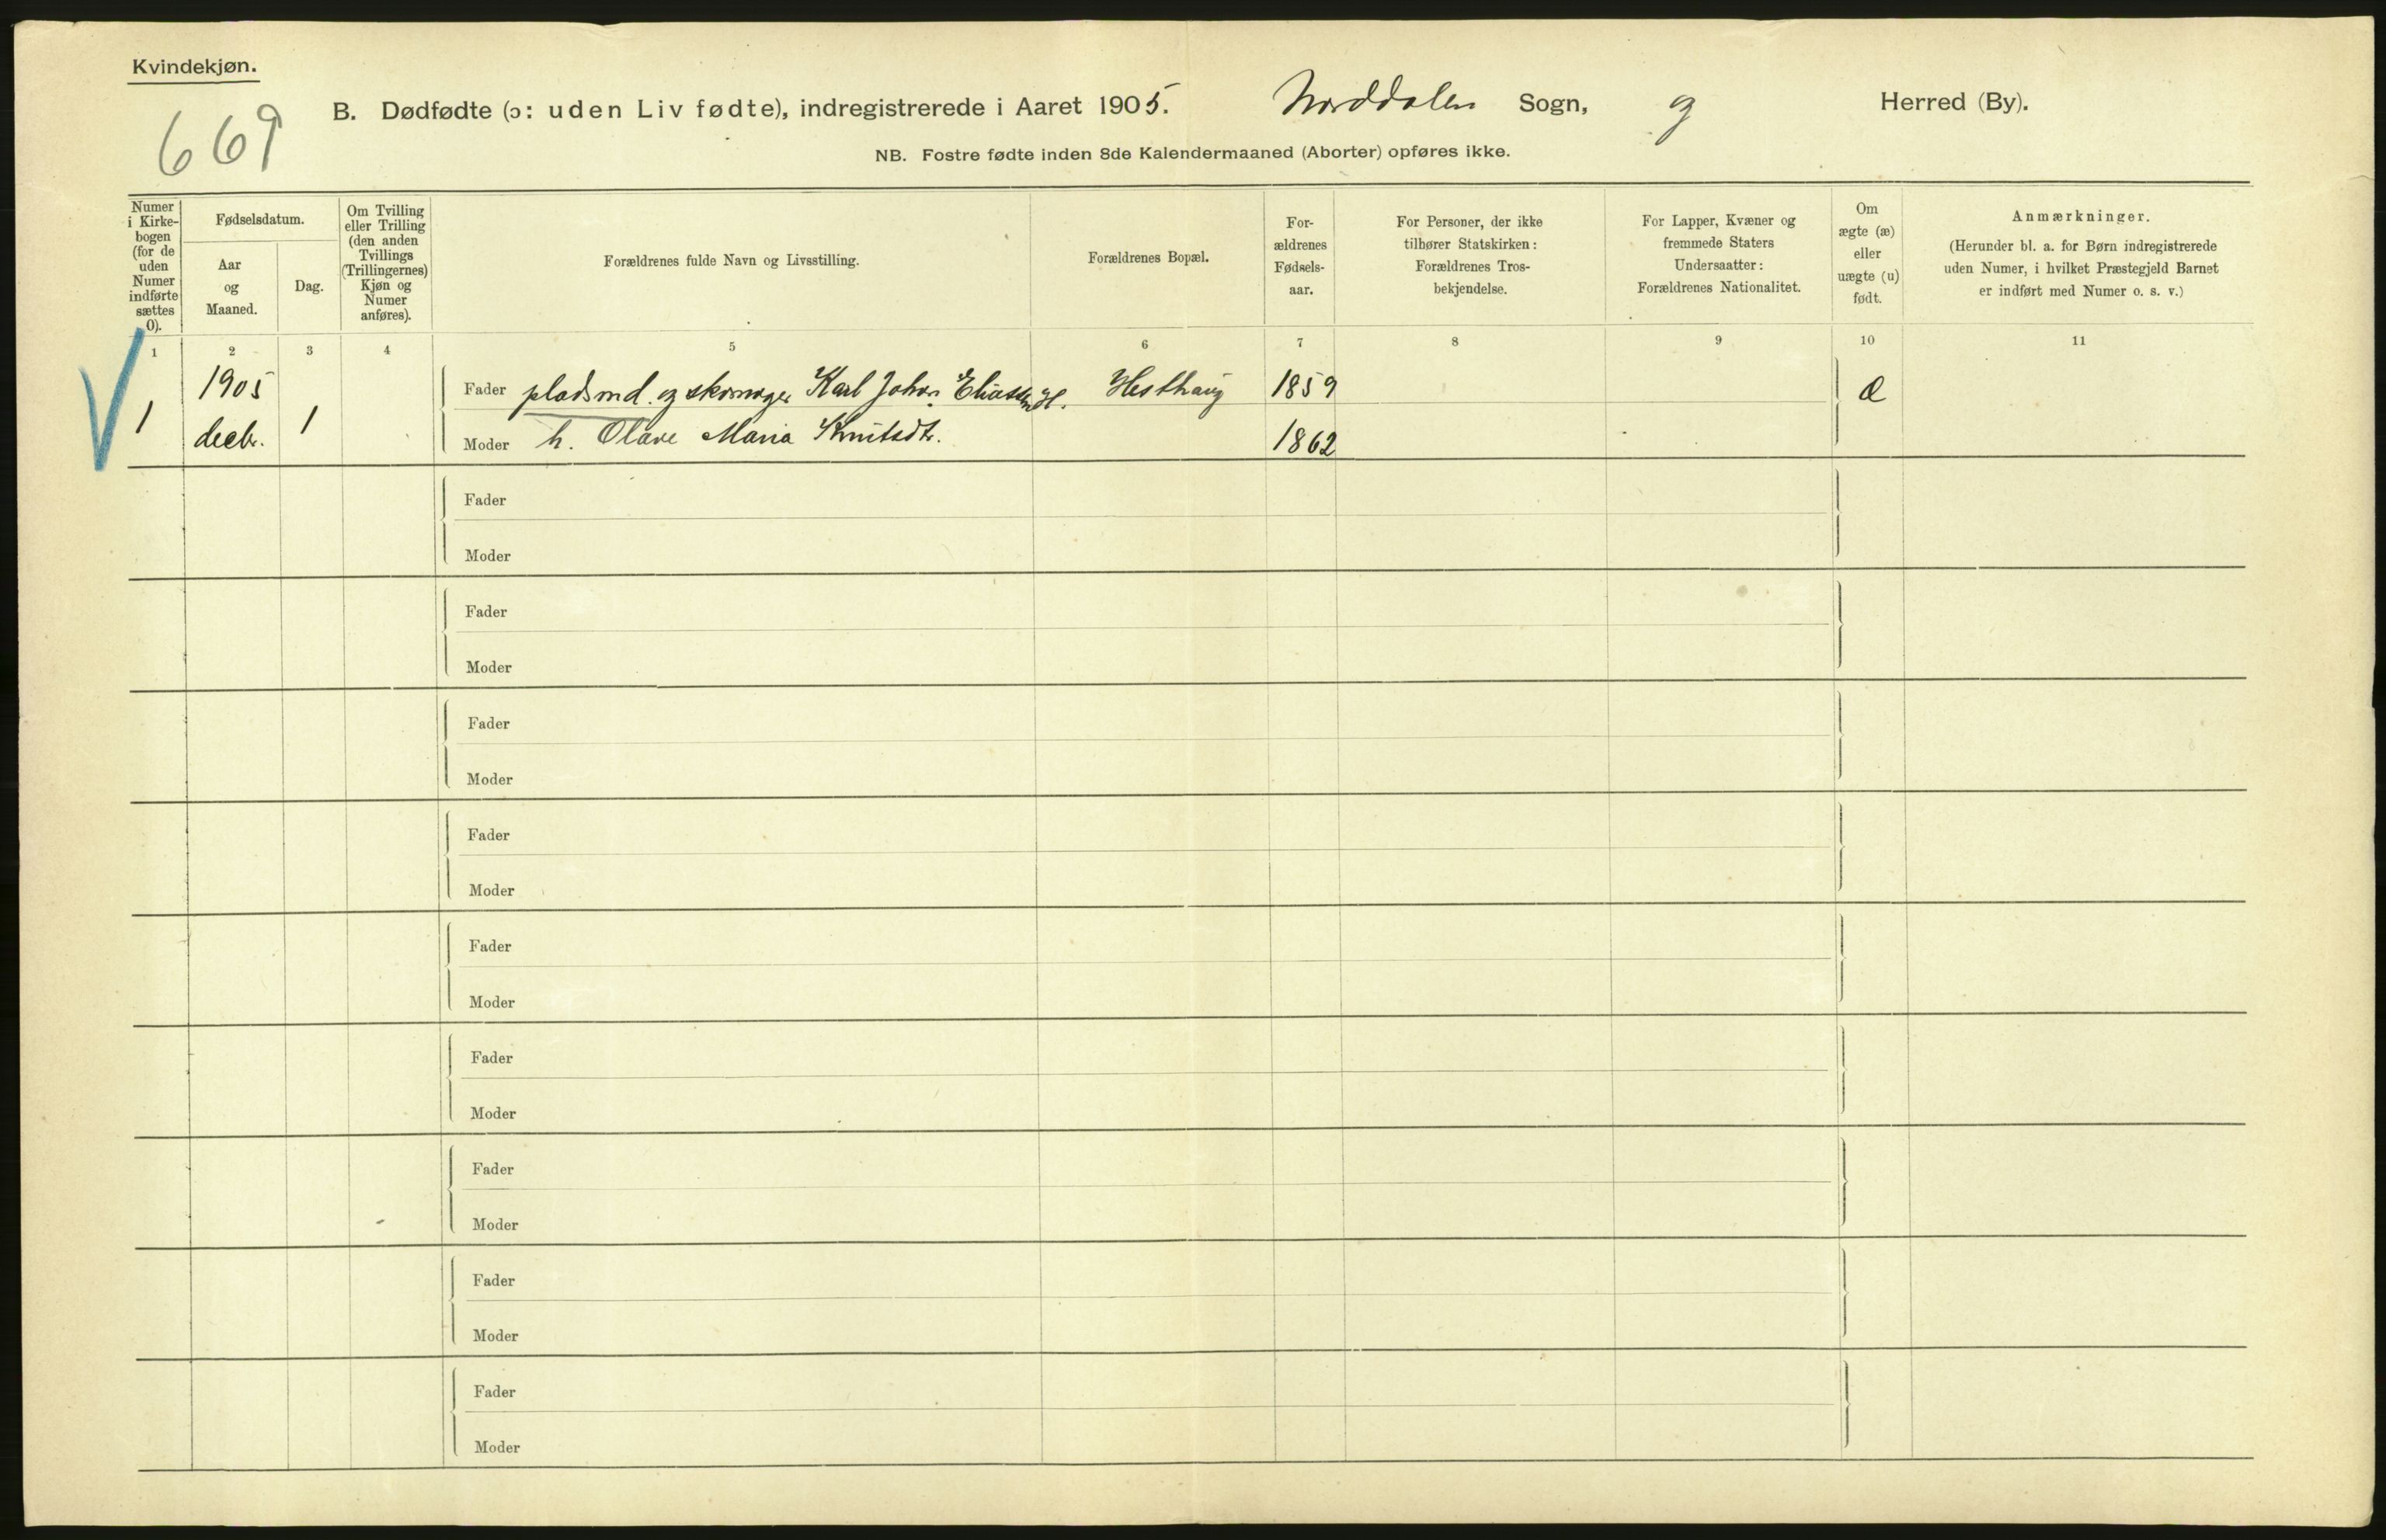 Kvindekjøn.
669
B. Dødfødte (ɔ: uden Liv fødte), indregistrerede i Aaret 1905. Norddalen Sogn, og Herred (By).
NB. Fostre fødte inden 8de Kalendermaaned (Aborter) opføres ikke.
Numer i Kirke-bogen (for de uden Numer indførte sættes 0).
Fødselsdatum.
Aar og Maaned.
Dag.
Om Tvilling eller Trilling (den anden Tvillings (Trillingernes) Kjøn og Numer anføres).
Forældrenes fulde Navn og Livsstilling.
Forældrenes Bopæl.
For-ældrenes Fødsels-aar.
For Personer, der ikke tilhører Statskirken: Forældrenes Tros-bekjendelse.
For Lapper, Kvæner og fremmede Staters Undersaatter: Forældrenes Nationalitet.
Om ægte (æ) eller uægte (u) født.
Anmærkninger.
(Herunder bl. a. for Børn indregistrerede uden Numer, i hvilket Præstegjeld Barnet er indført med Numer o. s. v.)
1 2 3 4 5 6 7 8 9 10 11
1 1905 decbr. 1
Fader pladsmd. og skomager Karl Johan Eliassen H. Hesthaug 1859 Æ
Moder h. Olave Maria Knutsdtr. 1862
Fader
Moder
Fader
Moder
Fader
Moder
Fader
Moder
Fader
Moder
Fader
Moder
Fader
Moder
Fader
Moder
Fader
Moder